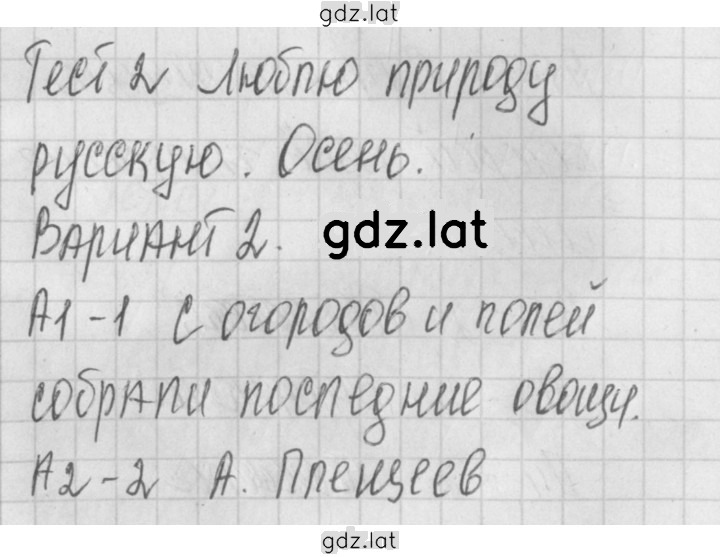 gdz.lat
Тест 2 Люблю природу
русскую. Осень.
Вариант 2. gdz.lat
А1-1 С огородов и полей
собрали последние овощи.
А2-2 А. Плещеев
gdz.lat